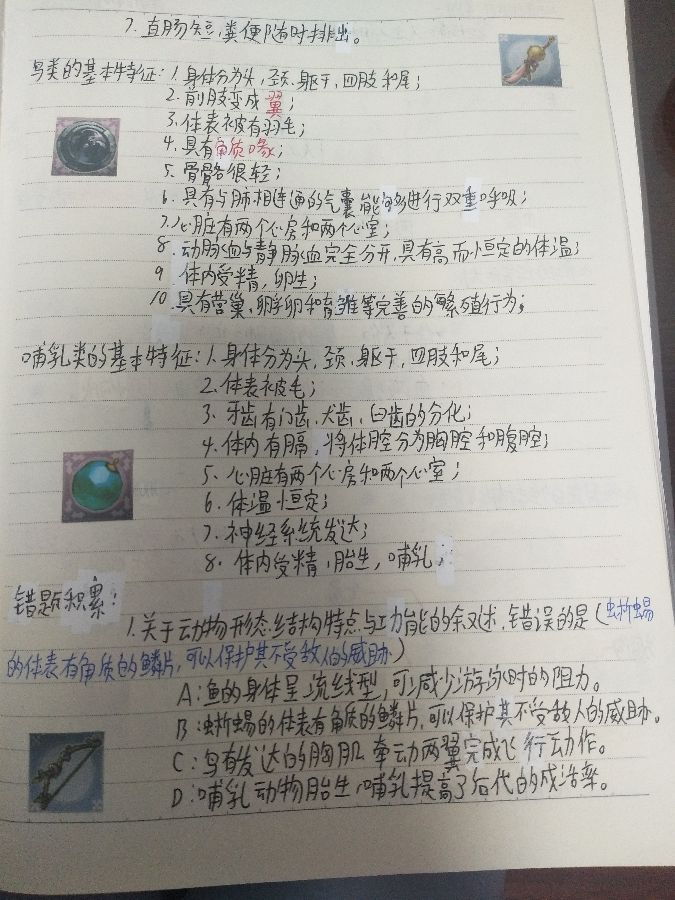 7. 直肠短,粪便随时排出。
鸟类的基本特征:1. 身体分为头,颈,躯干,四肢和尾;
2. 前肢变成翼;
3. 体表被有羽毛;
4. 具有角质喙;
5. 骨骼很轻;
6. 具有与肺相连通的气囊能够进行双重呼吸;
7. 心脏有两个心房和两个心室;
8. 动脉血与静脉血完全分开,具有高而恒定的体温;
9. 体内受精,卵生;
10. 具有营巢,孵卵和育雏等完善的繁殖行为;
哺乳类的基本特征:1. 身体分为头,颈,躯干,四肢和尾;
2. 体表被毛;
3. 牙齿有门齿,犬齿,臼齿的分化;
4. 体内有膈,将体腔分为胸腔和腹腔;
5. 心脏有两个心房和两个心室;
6. 体温恒定;
7. 神经系统发达;
8. 体内受精,胎生,哺乳;
错题积累:
1. 关于动物形态结构特点与功能的叙述,错误的是(蜥蜴
的体表有角质的鳞片,可以保护其不受敌人的威胁)
A:鱼的身体呈流线型,可减少游泳时的阻力。
B:蜥蜴的体表有角质的鳞片,可以保护其不受敌人的威胁。
C:鸟有发达的胸肌,牵动两翼完成飞行动作。
D:哺乳动物胎生,哺乳提高了后代的成活率。